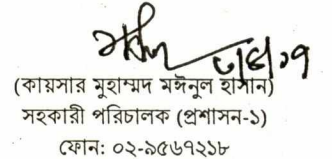 ৩/৪/১৭
(কায়সার মুহাম্মদ মঈনুল হাসান)
সহকারী পরিচালক (প্রশাসন-১)
ফোন: ০২-৯৫৬৭২১৮